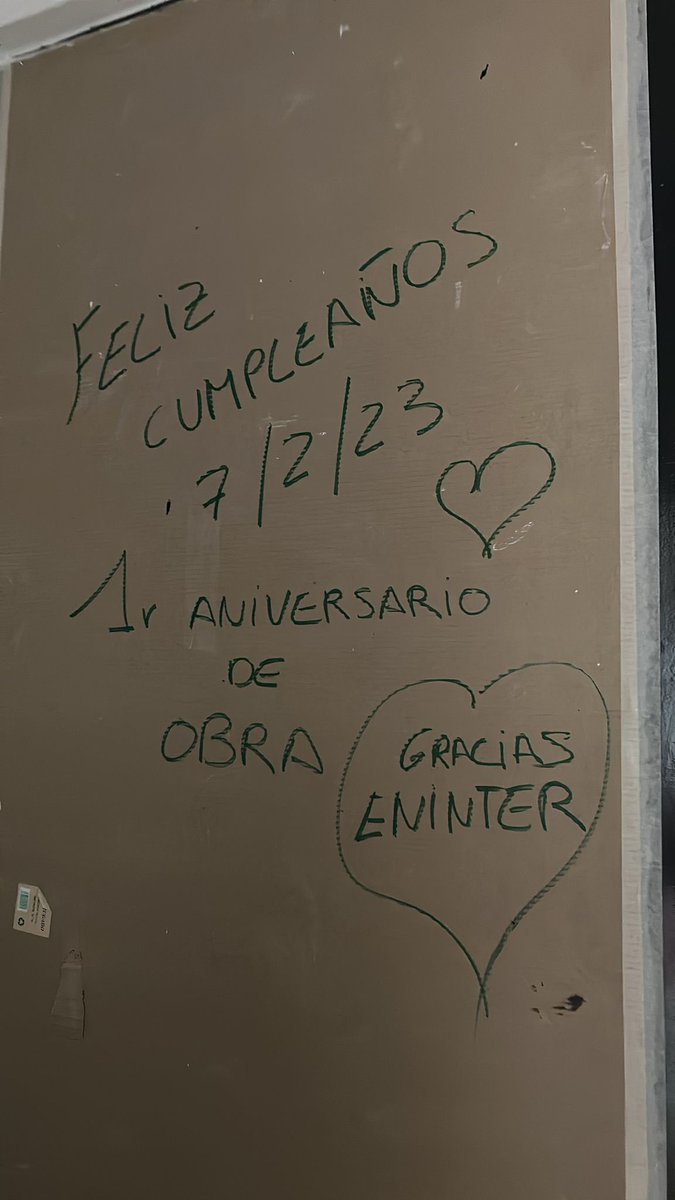 FELIZ
CUMPLEAÑOS
7/2/23
1r ANIVERSARIO
DE
OBRA
GRACIAS
ENINTER